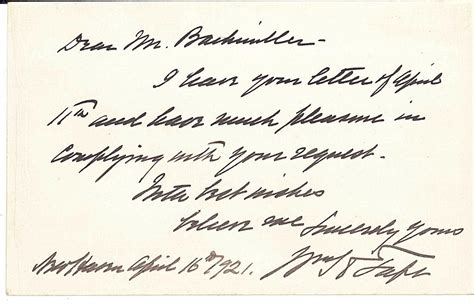 Dear Mr. Bachmiller -
I have your letter of April
11th and have much pleasure in
complying with your request.
With best wishes
believe me Sincerely yours
New Haven April 16th 1921. Wm H Taft